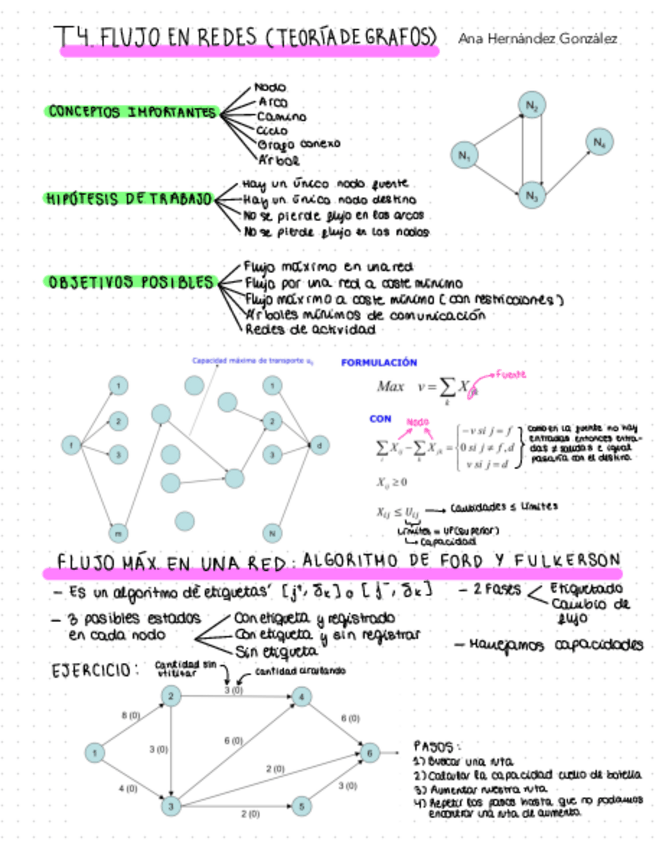 T4. FLUJO EN REDES (TEORÍA DE GRAFOS)
Ana Hernández González
CONCEPTOS IMPORTANTES
Nodo
Arco
Camino
Ciclo
Grafo conexo
Árbol
N₁
N₂
N₃
N₄
HIPÓTESIS DE TRABAJO
Hay un único nodo fuente
Hay un único nodo destino
No se pierde flujo en los arcos
No se pierde flujo en los nodos
OBJETIVOS POSIBLES
Flujo máximo en una red
Flujo por una red a coste mínimo
Flujo máximo a coste mínimo (con restricciones)
Árboles mínimos de comunicación
Redes de actividad
Capacidad máxima de transporte uᵢⱼ
f
1
2
3
m
1
2
3
N
d
FORMULACIÓN
Max v = ∑ Xfk
k
Fuente
CON
Nodo
∑ Xij − ∑ Xjk = { −v si j = f
0 si j ≠ f,d
v si j = d
como en la fuente no hay
entradas entonces entra-
das ≠ salidas e igual
pasaría con el destino.
Xij ≥ 0
Xij ≤ Uij → Cantidades ≤ límites
Límites = UP (superior)
Capacidad
FLUJO MÁX. EN UNA RED: ALGORITMO DE FORD Y FULKERSON
- Es un algoritmo de etiquetas [j⁺, δk] o [j⁻, δk]
- 2 FASES
Etiquetado
Cambio de
flujo
- 3 posibles estados
en cada nodo
Con etiqueta y registrado
Con etiqueta y sin registrar
Sin etiqueta
- Manejamos capacidades
EJERCICIO:
Cantidad sin
utilizar
cantidad circulando
1
2
3
4
5
6
8 (0)
4 (0)
3 (0)
3 (0)
6 (0)
2 (0)
2 (0)
6 (0)
3 (0)
PASOS:
1) Buscar una ruta
2) Calcular la capacidad cuello de botella
3) Aumentar nuestra ruta
4) Repetir los pasos hasta que no podamos
encontrar una ruta de aumento.